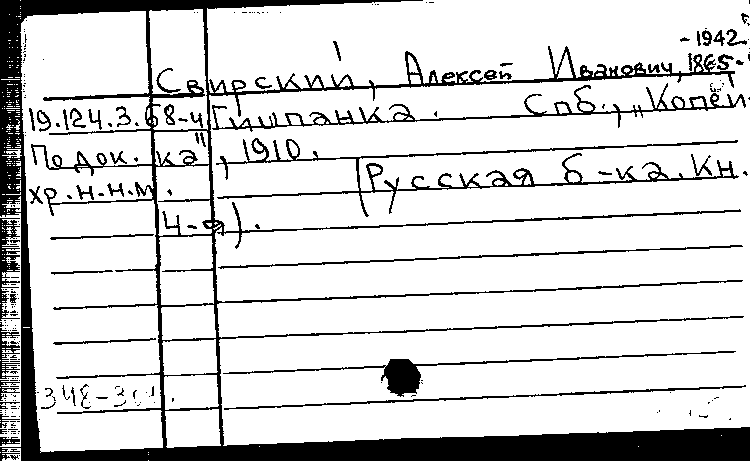 -1942.
Свирский, Алексей Иванович, 1865-
19.124.3.68-4 Гишпанка. Спб., „Копей
По док. ка", 1910.
хр.н-н.м. (Русская б-ка. Кн.
4-я).